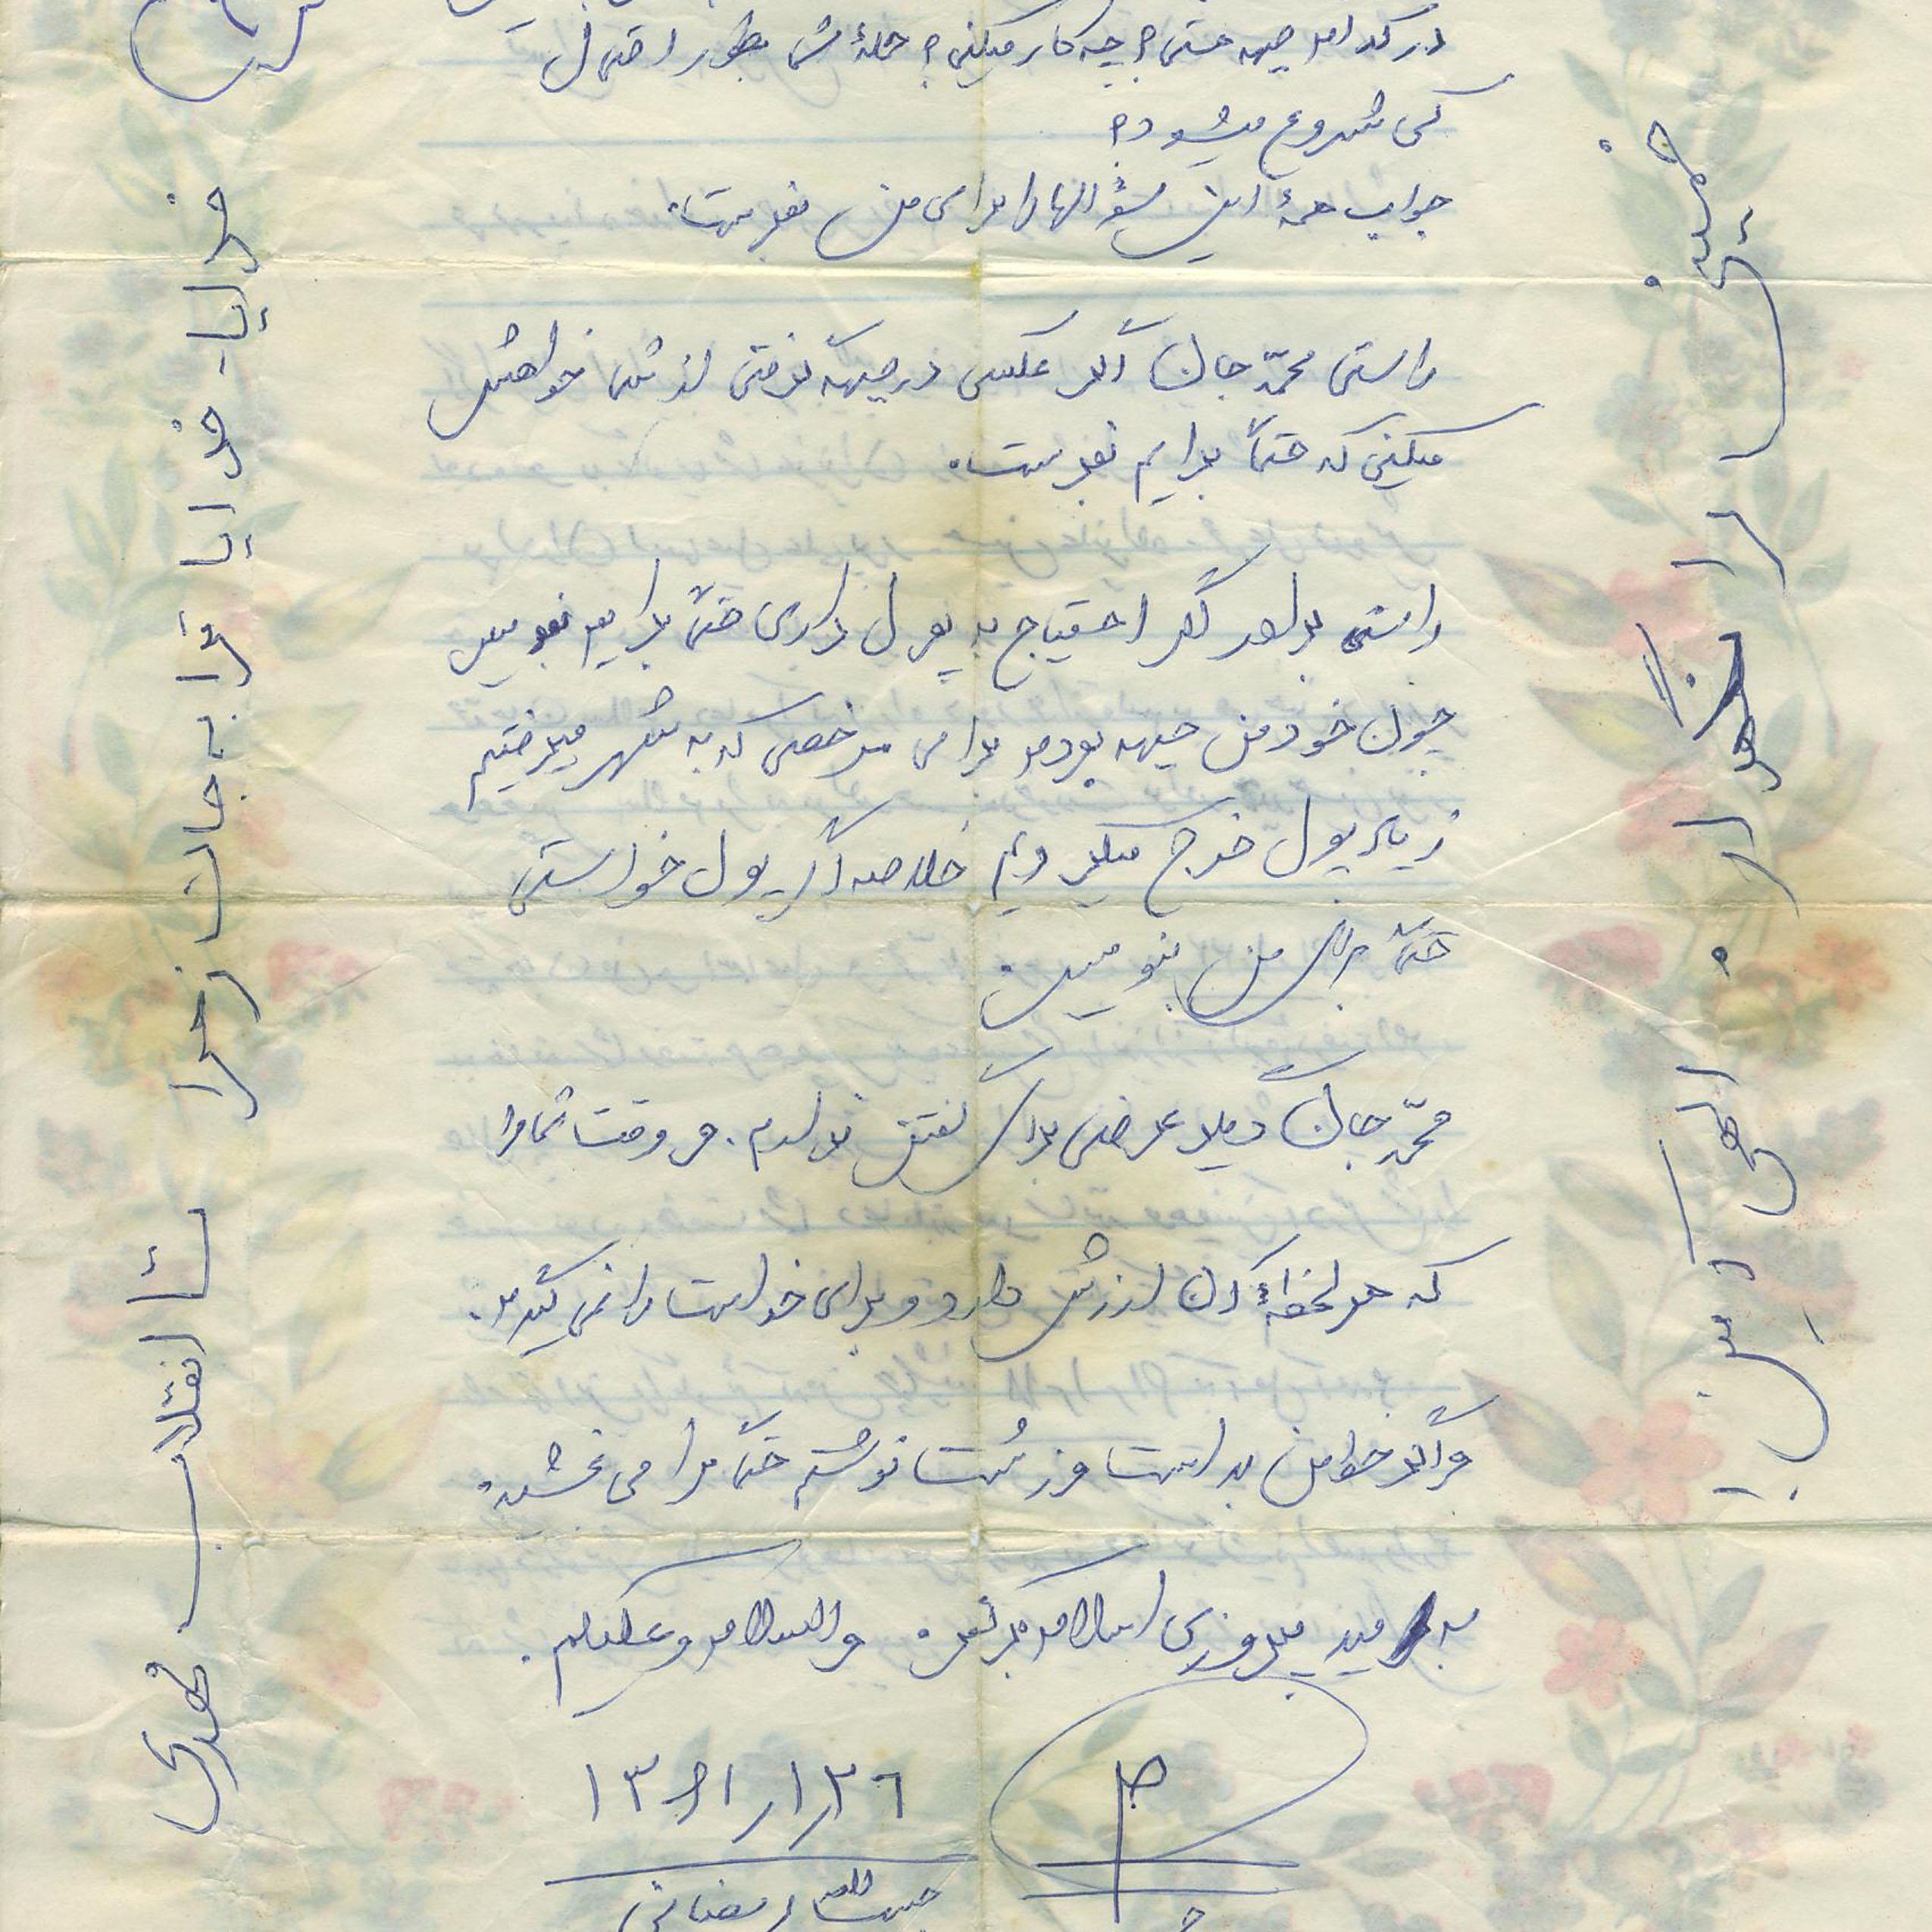 در کدام جبهه هستی؟ چه کار میکنی؟ حملهٔ شما بطور احتمال
کی شروع میشود؟
جواب همهٔ این سؤالها را برای من بفرست.
راستی محمّد جان اگر عکسی در جبهه گرفتی ازش خواهش
میکنم که حتماً برایم بفرست.
راستی برادر اگر احتیاج به پول داری حتماً برایم بنویس
چون خود من جبهه بودم برای مرخصی که به شهر میرفتیم
زیاد پول خرج میکردیم خلاصه اگر پول خواستی
حتماً برای من بنویس.
محمّد جان دیگر عرضی برای گفتن ندارم. و وقت شما را
که هر لحظهٔ آن ارزش دارد و برای خداست را نمی‌گیرم.
و اگر خط من بد است و زشت نوشتم حتماً مرا می‌بخشید.
به امید پیروزی اسلام بر کفر. والسلام وعلیکم.
۱۳۶۱/۱/۲۶
حبیب‌الله رمضانی
خدایا خدایا ترا به جان زهرا تا انقلاب مهدی
خمینی را نگهدار. الهی آمین